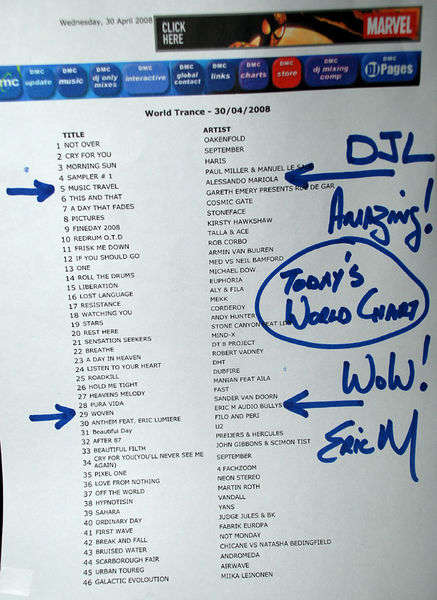 Wednesday, 30 April 2008
CLICK
HERE
MARVEL
DMC update
DMC music
DMC dj only mixes
DMC interactive
DMC global contact
DMC links
DMC charts
DMC store
DMC dj mixing comp
DMC DJ Pages
World Trance - 30/04/2008
TITLE ARTIST
1 NOT OVER OAKENFOLD
2 CRY FOR YOU SEPTEMBER
3 MORNING SUN HARIS
4 SAMPLER # 1 PAUL MILLER & MANUEL LE
5 MUSIC TRAVEL ALESSANDO MARIOLA
6 THIS AND THAT GARETH EMERY PRESENTS DE GAR
7 A DAY THAT FADES COSMIC GATE
8 PICTURES STONEFACE
9 FINEDAY 2008 KIRSTY HAWKSHAW
10 REDRUM O.T.D TALLA & ACE
11 FRISK ME DOWN ROB CORBO
12 IF YOU SHOULD GO ARMIN VAN BUUREN
13 ONE MED VS NEIL BAMFORD
14 ROLL THE DRUMS MICHAEL DOW
15 LIBERATION EUPHORIA
16 LOST LANGUAGE ALY & FILA
17 RESISTANCE MEKK
18 WATCHING YOU CORDEROY
19 STARS ANDY HUNTER
20 REST HERE STONE CANYON FEAT
21 SENSATION SEEKERS MIND-X
22 BREATHE DT 8 PROJECT
23 A DAY IN HEAVEN ROBERT VADNEY
24 LISTEN TO YOUR HEART DHT
25 ROADKILL DUBFIRE
26 HOLD ME TIGHT MANIAN FEAT AILA
27 HEAVENS MELODY FAST
28 PURA VIDA SANDER VAN DOORN
29 WOVEN ERIC M AUDIO BULLYS
30 ANTHEM FEAT, ERIC LUMIERE FILO AND PERI
31 Beautiful Day U2
32 AFTER 87 PREIJERS & HERCULES
33 BEAUTIFUL FILTH JOHN GIBBONS & SCIMON TIST
34 CRY FOR YOU(YOU'LL NEVER SEE ME AGAIN) SEPTEMBER
35 PIXEL ONE 4 FACHZOOM
36 LOVE FROM NOTHING NEON STEREO
37 OFF THE WORLD MARTIN ROTH
38 HYPNOTISIN VANDALL
39 SAHARA YANS
40 ORDINARY DAY JUDGE JULES & BK
41 FIRST WAVE FABRIK EUROPA
42 BREAK AND FALL NOT MONDAY
43 BRUISED WATER CHICANE VS NATASHA BEDINGFIELD
44 SCARBOROUGH FAIR ANDROMEDA
45 URBAN TOUREG AIRWAVE
46 GALACTIC EVOLOUTION MIIKA LEINONEN
DJL
Amazing!
TODAY'S
WORLD CHART
WOW!
Eric M